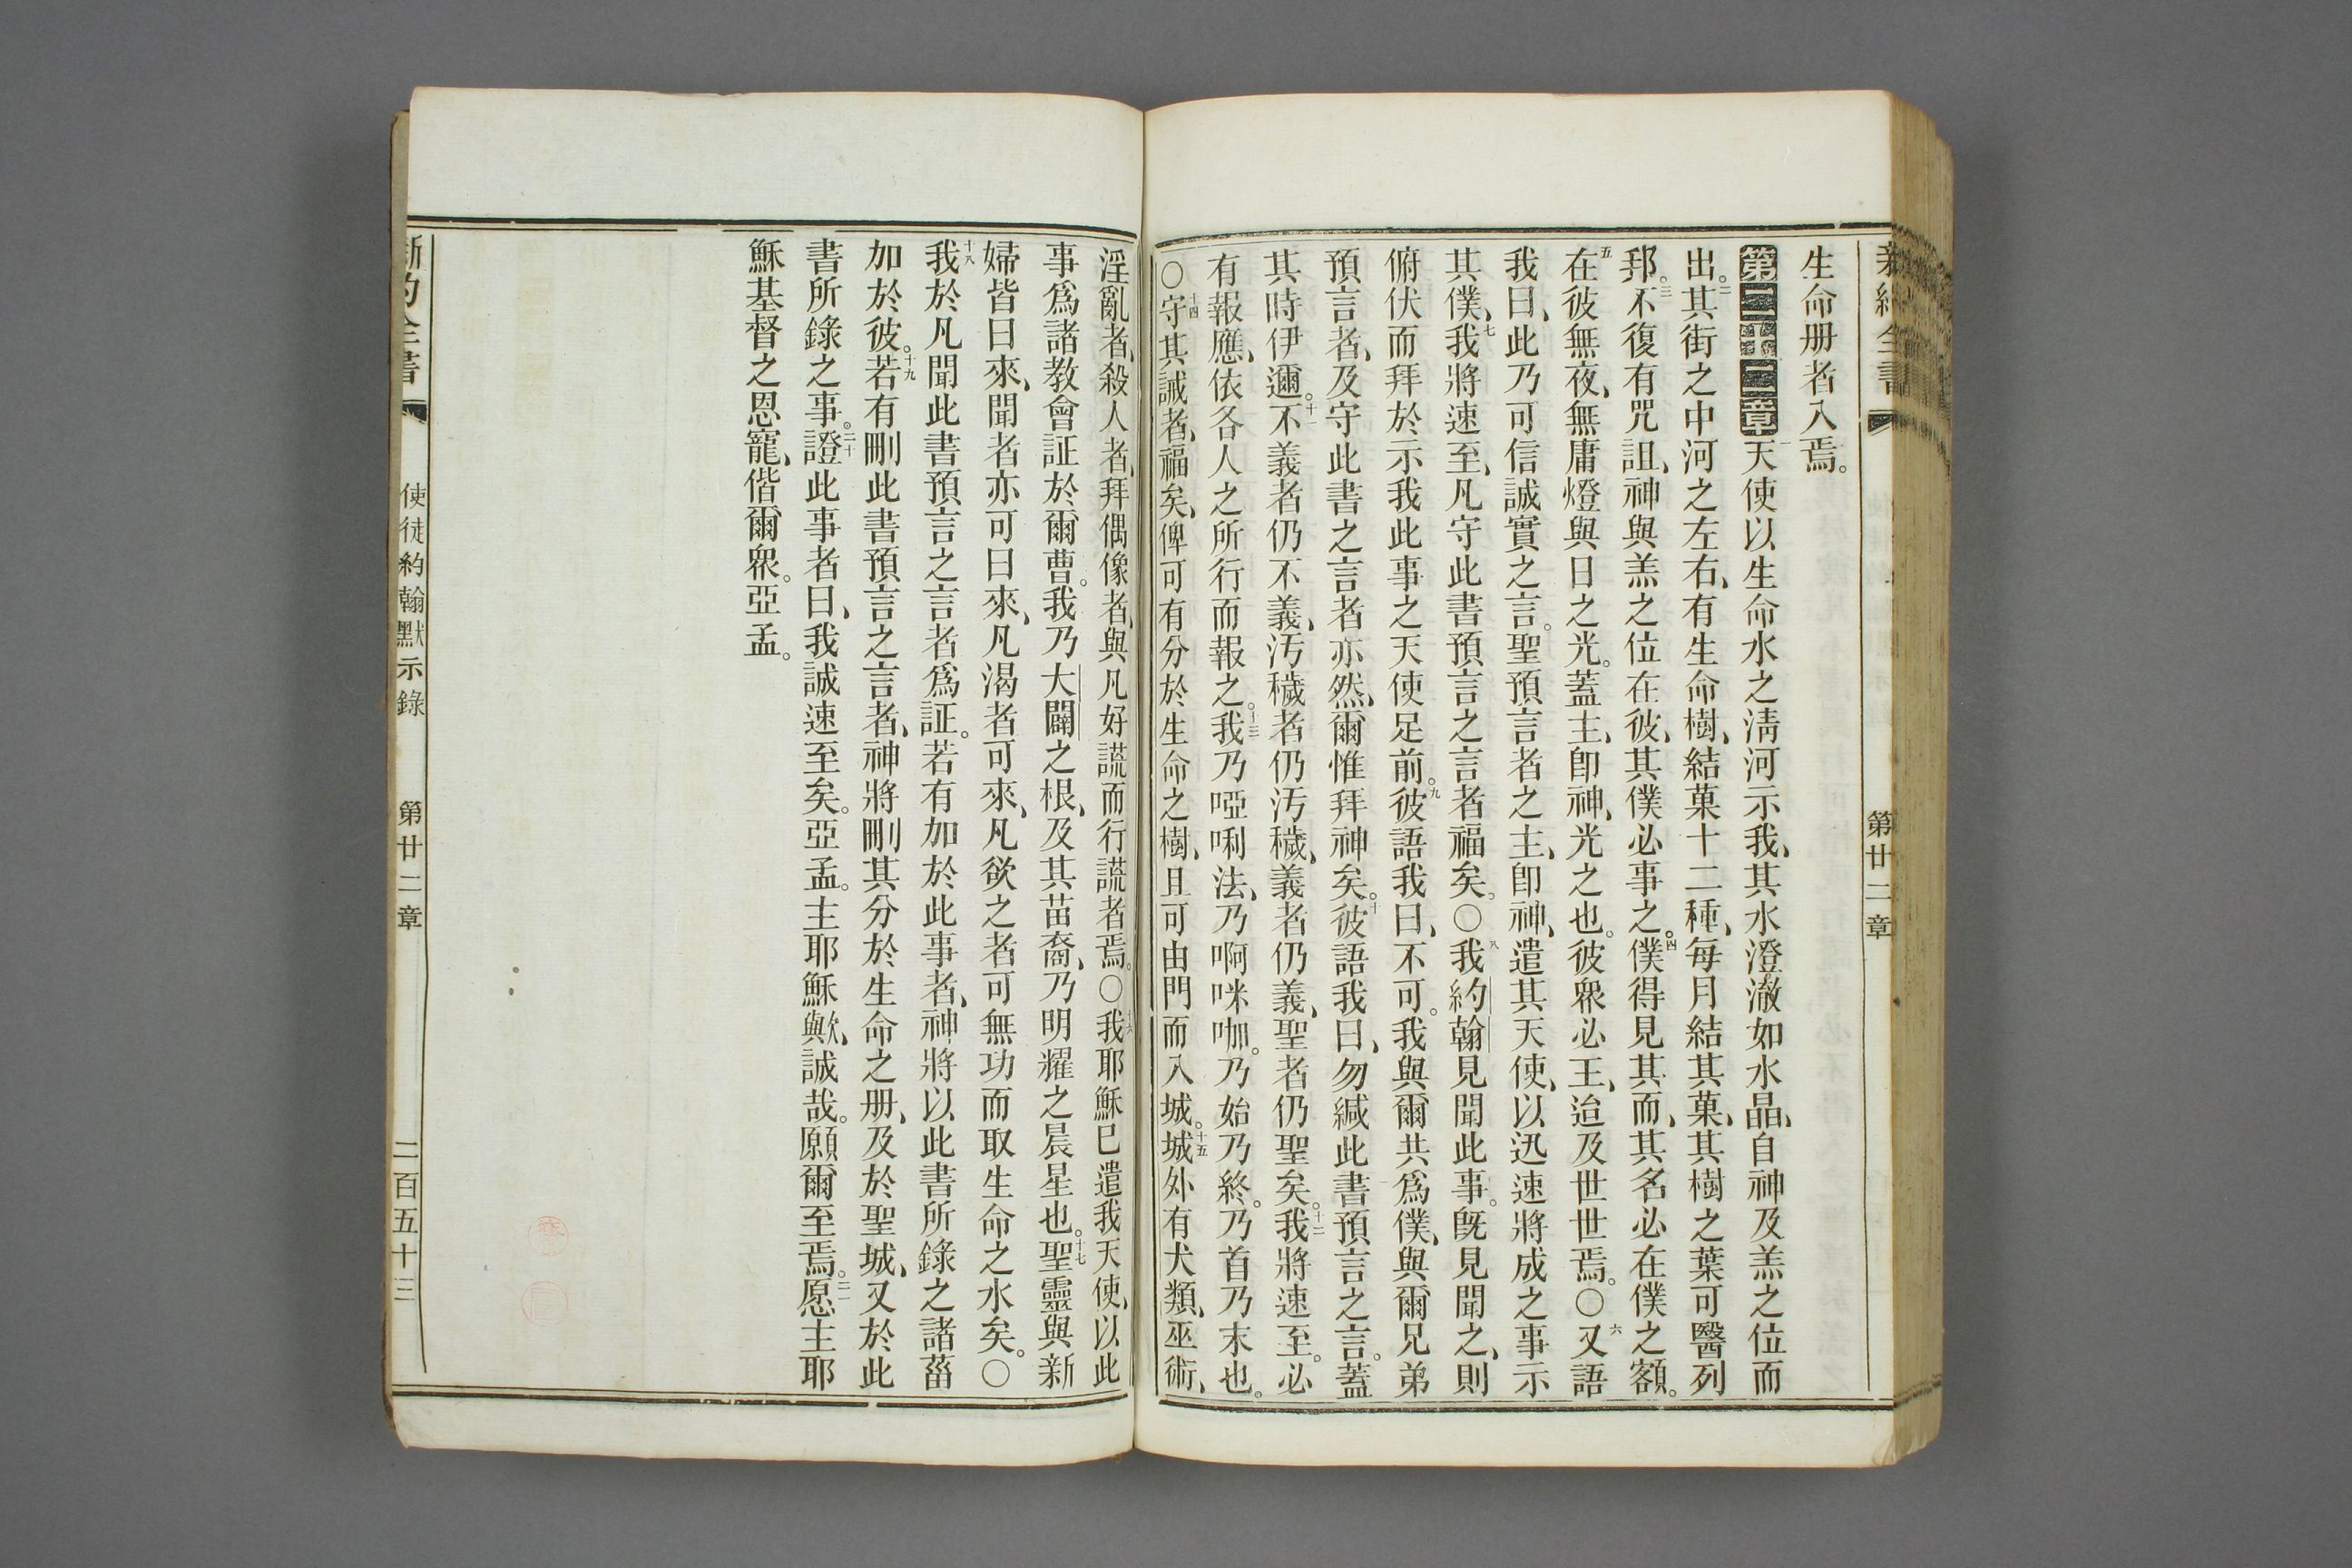 生命册者入焉。
第二十二章一天使以生命水之淸河示我、其水澄澈如水晶、自神及羔之位而
出。二其街之中河之左右、有生命樹、結菓十二種、每月結其菓、其樹之葉可醫列
邦。三不復有咒詛、神與羔之位在彼、其僕必事之。四僕得見其面、其名必在僕之額。
五在彼無夜、無庸燈與日之光。蓋主、卽神、光之也。彼衆必王、迨及世世焉。〇六又語
我曰、此乃可信誠實之言。聖預言者之主、卽神、遣其天使、以迅速將成之事示
其僕、七我將速至、凡守此書預言之言者福矣。〇八我約翰見聞此事。旣見聞之、則
俯伏而拜於示我此事之天使足前。九彼語我曰、不可。我與爾共爲僕、與爾兄弟
預言者、及守此書之言者亦然、爾惟拜神矣。十彼語我曰、勿緘此書預言之言。蓋
其時伊邇。十一不義者仍不義、汚穢者仍汚穢、義者仍義、聖者仍聖矣。十二我將速至。必
有報應、依各人之所行而報之。十三我乃啞唎法、乃啊咪咖。乃始乃終。乃首乃末也。
〇十四守其誡者、福矣、俾可有分於生命之樹、且可由門而入城。十五城外有犬類、巫術、
淫亂者、殺人者、拜偶像者、與凡好謊而行謊者焉。〇十六我耶穌已遣我天使、以此
事爲諸教會証於爾曹。我乃大闢之根、及其苗裔、乃明耀之晨星也。十七聖靈與新
婦皆曰來、聞者亦可曰來、凡渴者可來、凡欲之者可無功而取生命之水矣。〇
十八我於凡聞此書預言之言者爲証。若有加於此事者、神將以此書所錄之諸菑
加於彼。十九若有刪此書預言之言者、神將刪其分於生命之册、及於聖城、又於此
書所錄之事。二十證此事者曰、我誠速至矣。亞孟。主耶穌歟、誠哉。願爾至焉。二一愿主耶
穌基督之恩寵、偕爾衆。亞孟。
新約全書
使徒約翰默示錄
第廿二章
二百五十三